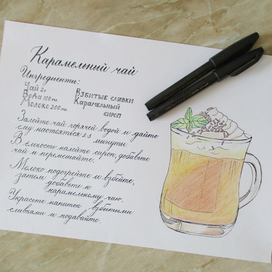 Карамельный чай
Ингредиенты:
Чай 2г
Вода 100 мл
Молоко 200 мл
Взбитые сливки
Карамельный
сироп
Залейте чай горячей водой и дайте
ему настояться 2-3
минуты
В емкость налейте сироп, добавьте
чай и перемешайте.
Молоко подогрейте и взбейте,
затем добавьте к
карамельному чаю.
Украсьте напиток взбитыми
сливками и подавайте.